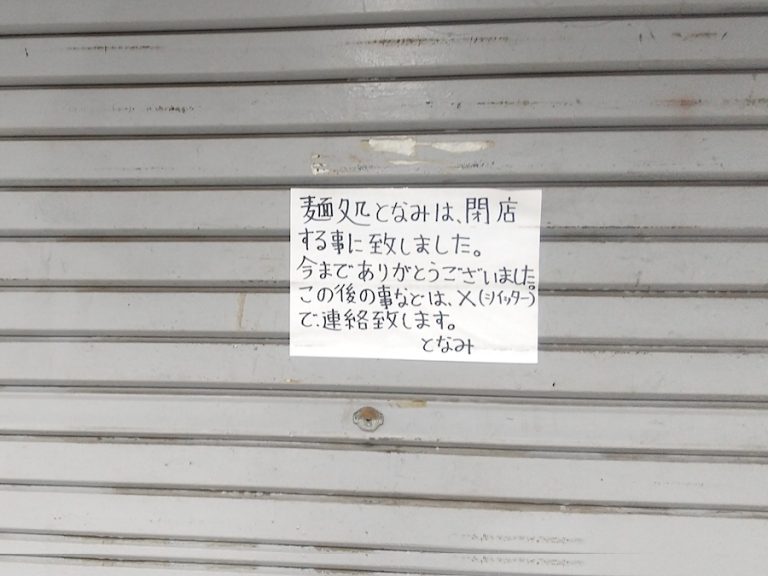 麺処となみは、閉店
する事に致しました。
今までありがとうございました。
この後の事などは、X(ツイッター)
で、連絡致します。
となみ